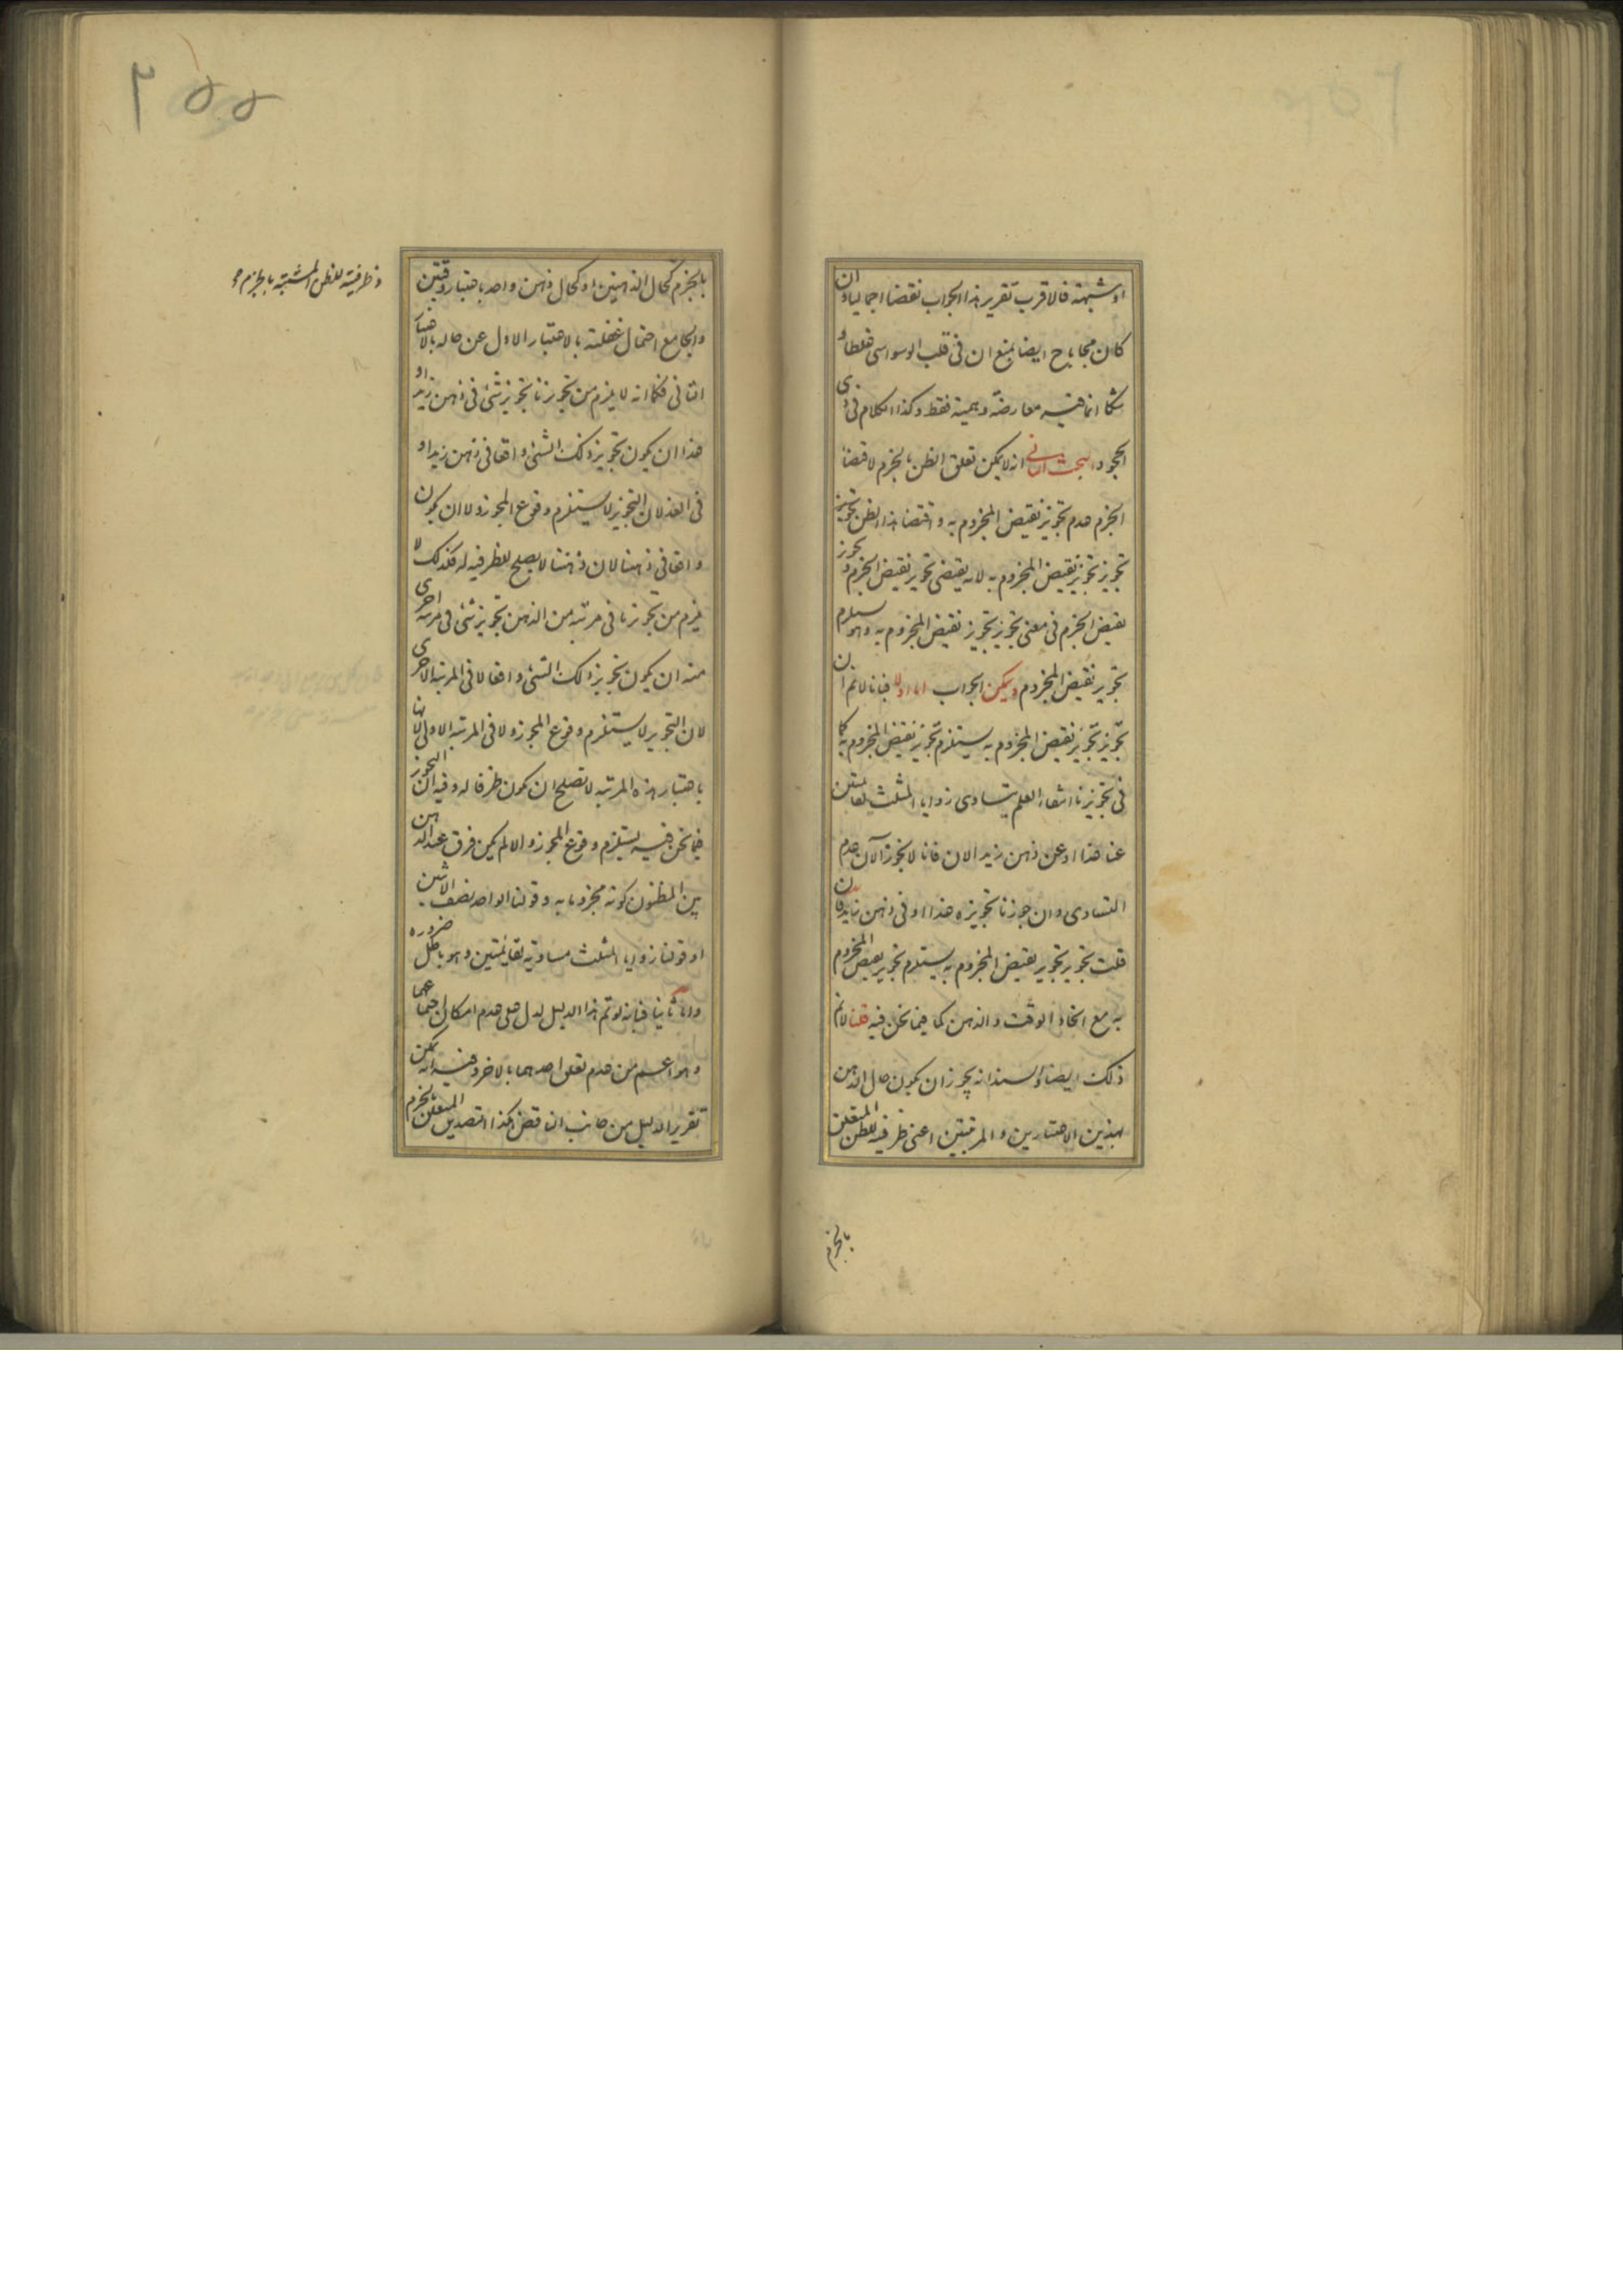 او شبهة فالاقرب تقرير هذا الجواب نقضا اجماليا وان
كان مجابا ح ايضا بمنع ان فى قلب الوسواسى غلطا و
شكا انما فيه معارضة وهمية فقط وكذا الكلام فى ذى
الجحود البحث الثانى انه لا يمكن تعلق الظن بالجزم لاقتضاء
الجزم عدم تجويز نقيض المجزوم به واقتضاء هذا الظن تجويز
تجويز تجويز نقيض المجزوم به لانه يقتضى تجويز نقيض الجزم و تجويز
نقيض الجزم فى معنى تجويز تجويز نقيض المجزوم به وهو يستلزم
تجويز نقيض المجزوم ويمكن الجواب اما اولا فبانا لانم ان
تجويز تجويز نقيض المجزوم به يستلزم تجويز نقيض المجزوم به كما
فى تجويزنا انتفاء العلم بتساوى زوايا المثلث لقائمتين
عنا غدا او عن ذهن زيد الان فانا لا نجوز الآن عدم
التساوى وان جوزنا تجويزه غدا او فى ذهن زيد فان
قلت تجويز تجويز نقيض المجزوم به يستلزم تجويز نقيض المجزوم
به مع اتحاد الوقت والذهن كما فيما نحن فيه قلنا لانم
ذلك ايضا والسند انه يجوز ان يكون حال الذهن
بهذين الاعتبارين والمرتبتين اعنى ظرفية للظن المتعلق
بالجزم
٢٥٥
بالجزم كحال الذهنين او كحال ذهن واحد باعتبار وقتين
وظرفية للظن المشبه بالجزم
والجامع احتمال غفلته بالاعتبار الاول عن حاله بالاعتبار
الثانى فكما انه لا يلزم من تجويزنا تجويز شئ فى ذهن زيد او
غدا ان يكون تجويز ذلك الشئ واقعا فى ذهن زيد او
فى الغد لان التجويز لا يستلزم وقوع المجوز ولا ان يكون
واقعا فى ذهننا لان ذهننا لا يصلح لظرفيه له فكذلك لا
يلزم من تجويزنا فى مرتبة من الذهن تجويز شئ فى مرتبة اخرى
منه ان يكون تجويز ذلك الشئ واقعا لا فى المرتبة الاخرى
لان التجويز لا يستلزم وقوع المجوز ولا فى المرتبة الاولى لانها
باعتبار هذه المرتبة لا تصلح ان يكون ظرفا له وفيه ان التجويز
فيما نحن فيه يستلزم وقوع المجوز والا لم يكن فرق عند الذهن
بين المظنون كونه مجزوما به وقولنا الواحد نصف الاثنين
او قولنا زوايا المثلث مساوية لقائمتين وهو باطل ضرورة
واما ثانيا فبانه لو تم هذا الدليل لدل على عدم امكان اجتماعهما
وهو اعم من عدم تعلق احدهما بالاخر وفيه انه يمكن
تقرير الدليل من جانب الناقض كذا التصديق المتعلق بالجزم